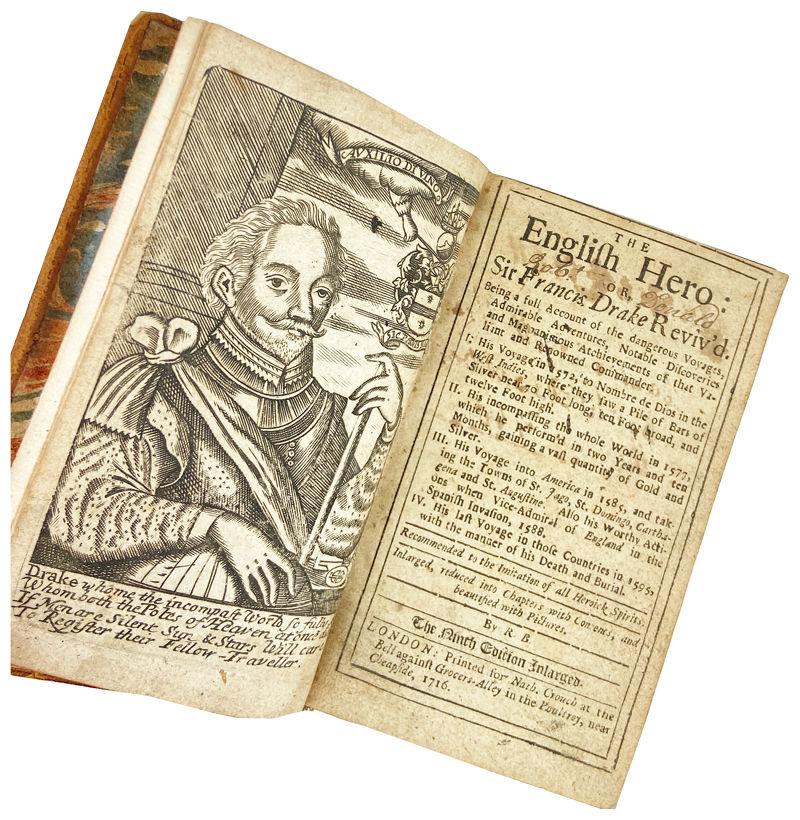 AVXILIO DIVINO
Drake whome the incompast World so fully
Whom both the Poles of Heaven at once
If Men are Silent Sun & Stars Will care
To Register their Fellow-Traveller.
THE
Engliſh Hero:
OR,
Sir Francis Drake Reviv'd.
Being a full Account of the dangerous Voyages,
Admirable Adventures, Notable Diſcoveries
and Magnanimous Atchievements of that Va-
liant and Renowned Commander.
I. His Voyage in 1572, to Nombre de Dios in the
Weſt Indies, where they ſaw a Pile of Bars of
Silver near 70 Foot long, ten Foot broad, and
twelve Foot high.
II. His incompaſſing the whole World in 1577,
which he perform'd in two Years and ten
Months, gaining a vaſt quantity of Gold and
Silver.
III. His Voyage into America in 1585, and tak-
ing the Towns of St. Jago, St. Domingo, Cartha-
gena and St. Auguſtine. Alſo his Worthy Acti-
ons when Vice-Admiral of England in the
Spaniſh Invaſion, 1588.
IV. His laſt Voyage in thoſe Countries in 1595,
with the manner of his Death and Burial.
Recommended to the Imitation of all Heroick Spirits.
Inlarged, reduced into Chapters with Contents, and
beautified with Pictures.
By R. B.
The Ninth Edition Inlarged.
LONDON: Printed for Nath. Crouch at the
Bell againſt Grocers-Alley in the Poultrey, near
Cheapſide, 1716.